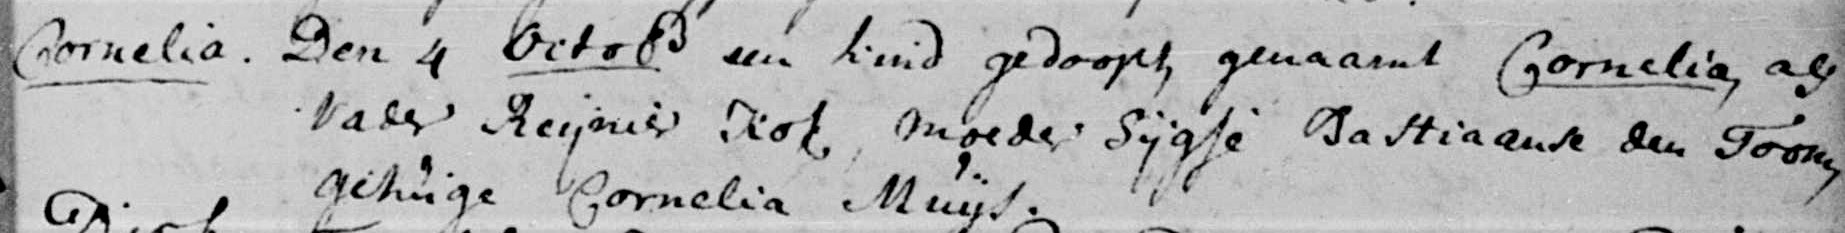 Cornelia. Den 4 Octob een kind gedoopt, genaamt Cornelia, als
Vader Reijnier Kok, Moeder Sijgje Bastiaanse den Toom,
getuige Cornelia Muijs.
Dirk